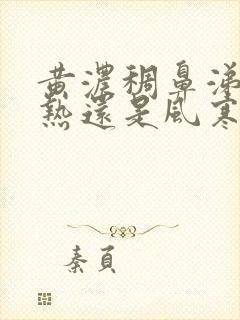 黄濃稠鼻涕
熱還是風寒
秦頁